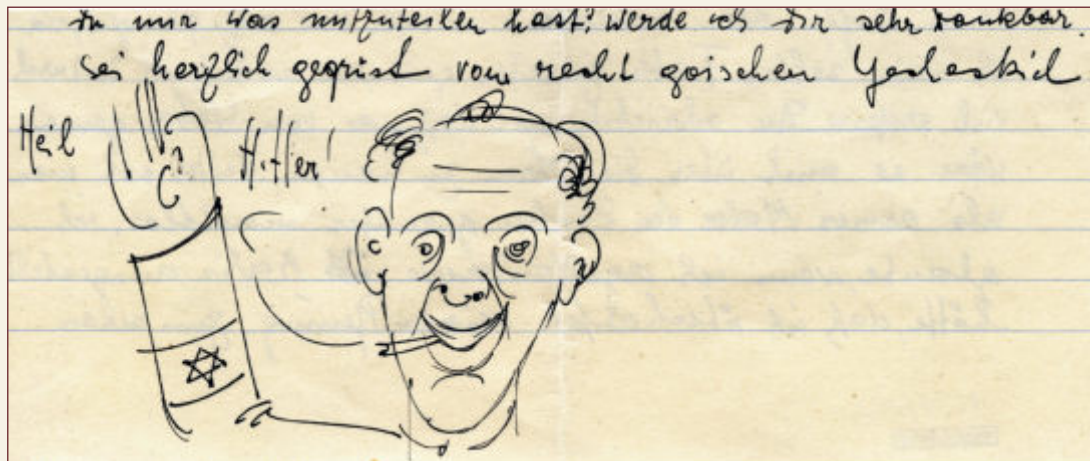 du mir was mitzuteilen hast? werde ich Dir sehr dankbar.
Sei herzlich gegrüst vom recht goischen
Heil Hitler!